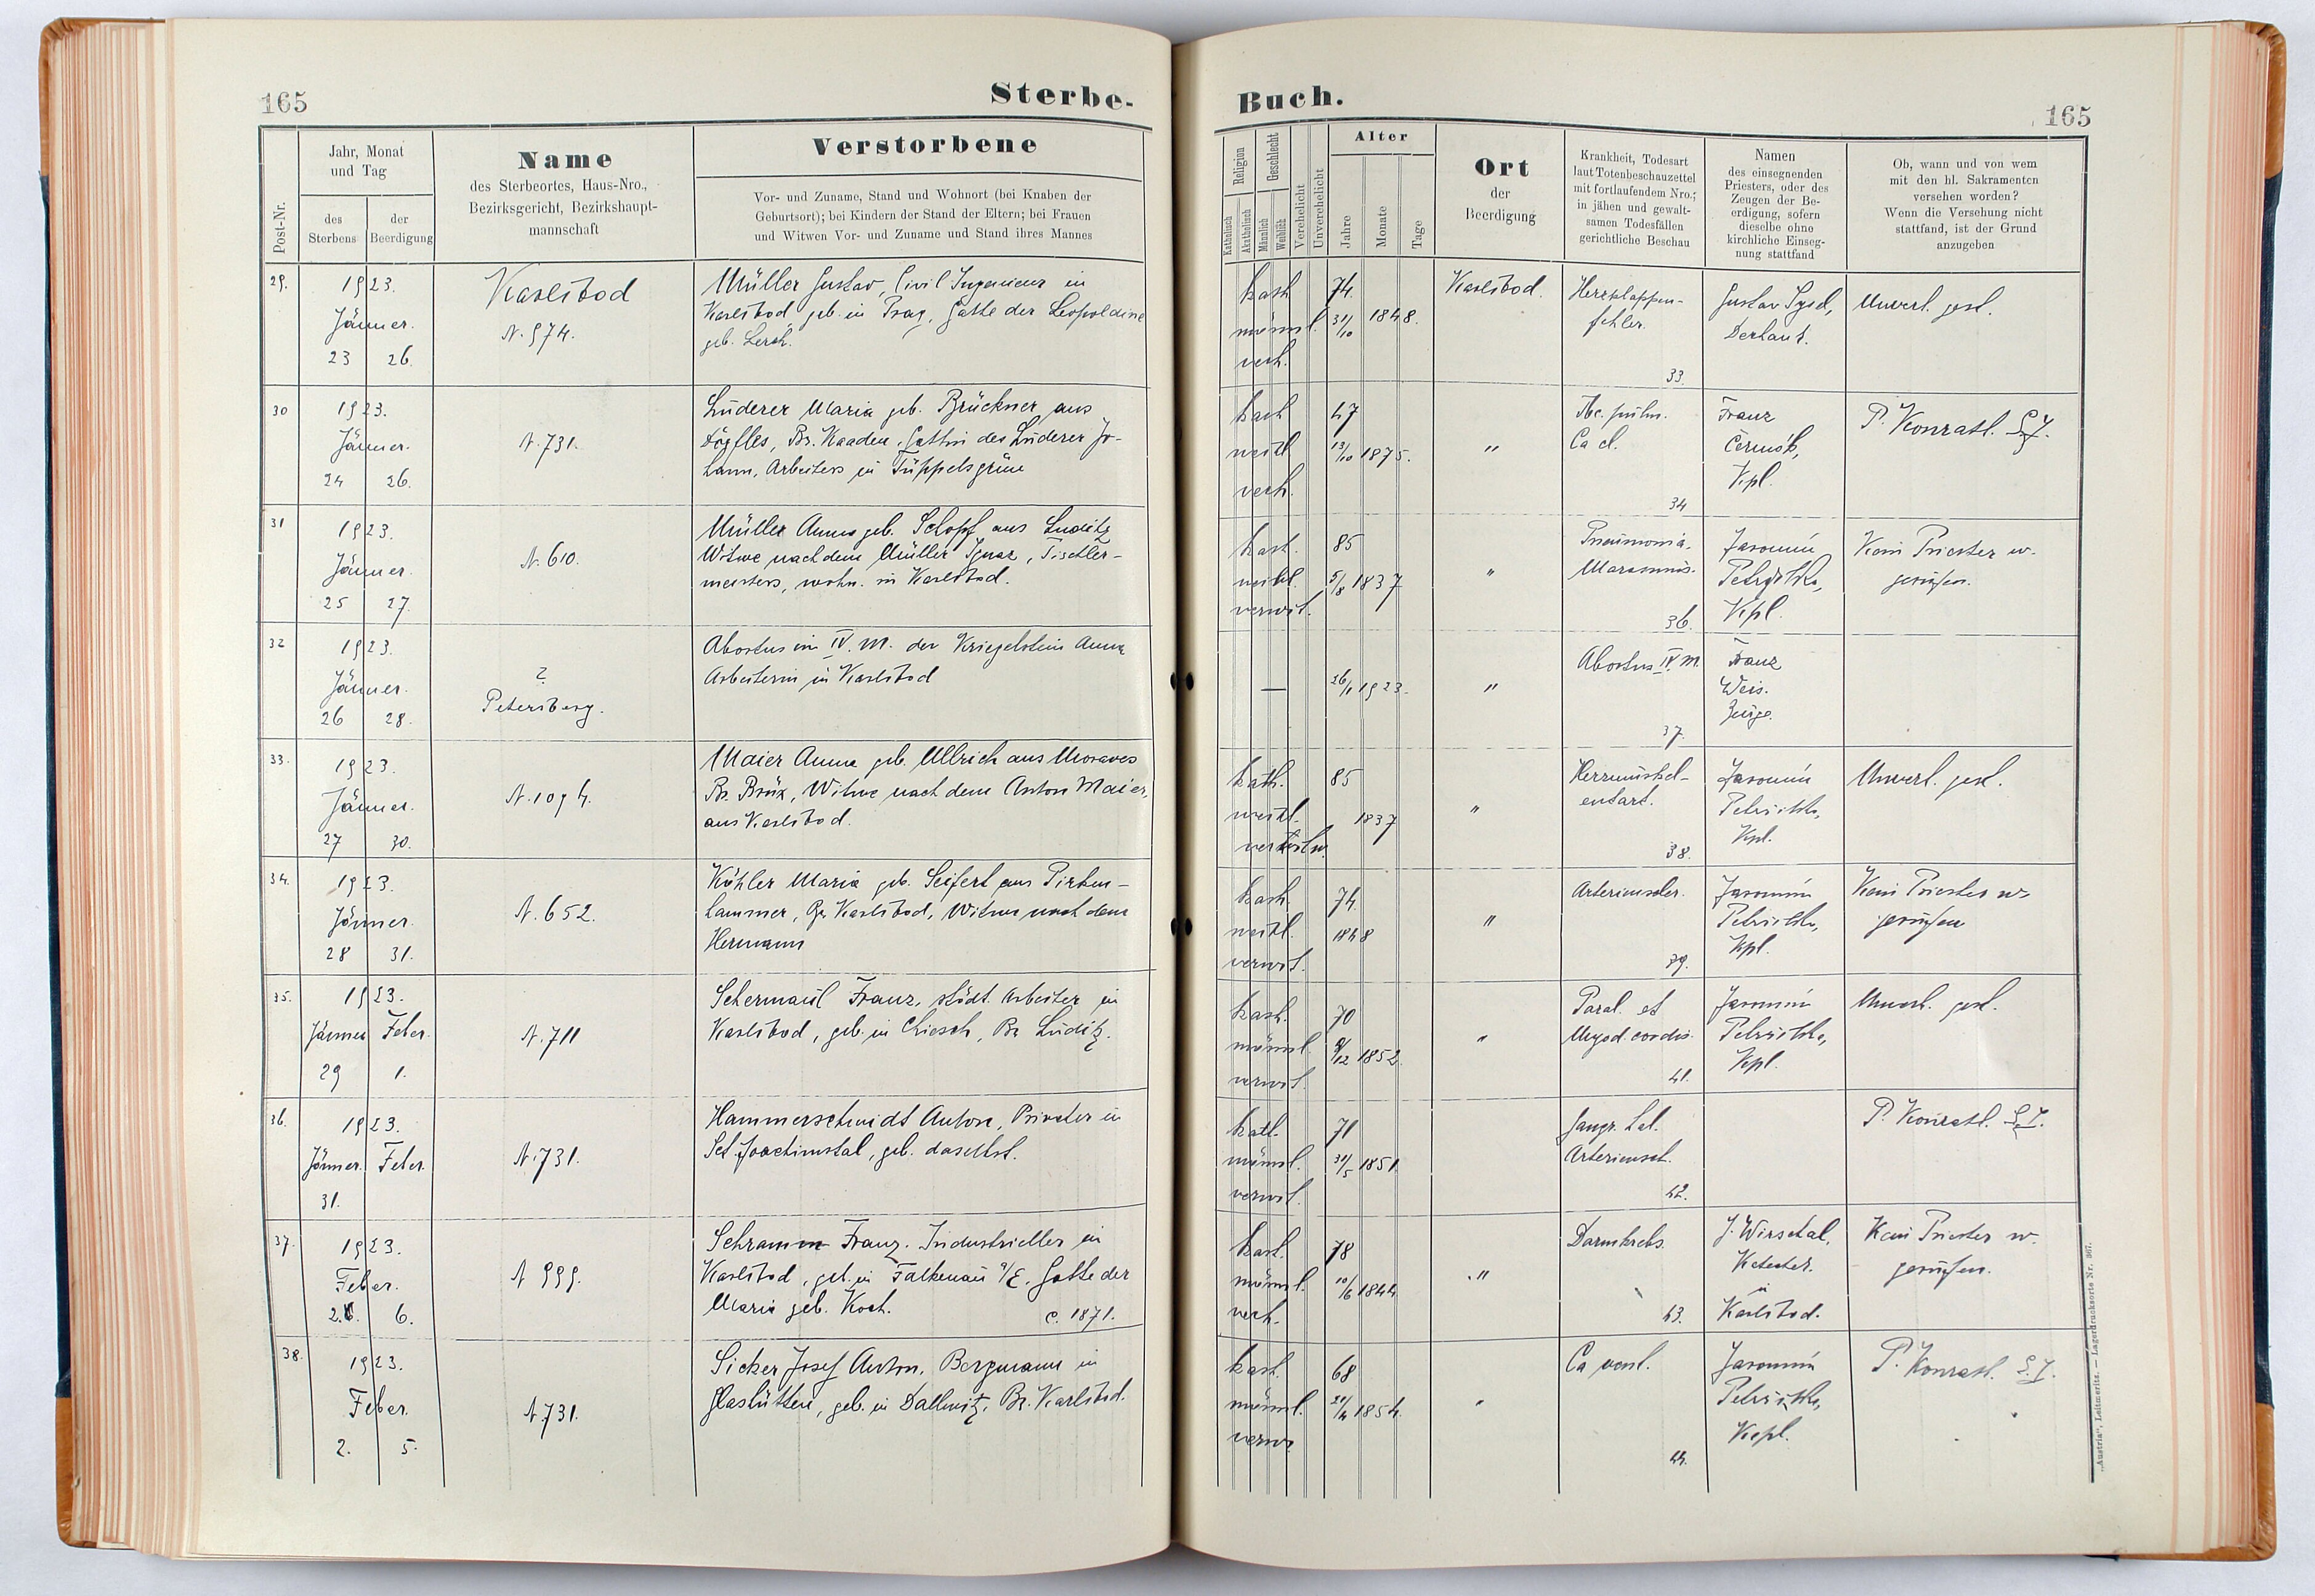 165
Sterbe-
Post-Nr.
Jahr, Monat
und Tag
des
Sterbens
der
Beerdigung
Name
des Sterbeortes, Haus-Nro.,
Bezirksgericht, Bezirkshaupt-
mannschaft
Verstorbene
Vor- und Zuname, Stand und Wohnort (bei Knaben der
Geburtsort); bei Kindern der Stand der Eltern; bei Frauen
und Witwen Vor- und Zuname und Stand ihres Mannes
29.
1923.
Jänner.
23 26.
Karlsbad
N. 974.
Müller Gustav, Civil Ingenieur in
Karlsbad geb. in Prag, Gatte der Leopoldine
geb. Lerch.
30
1923.
Jänner.
24 26.
N. 731.
Luderer Maria geb. Brückner aus
Br. Kaaden, Gattin des Luderer Jo-
hann, Arbeiters in Tüppelsgrün
31
1923.
Jänner.
25 27.
N. 610.
Müller Anna geb. Schopf aus Luditz
Witwe nach dem Müller Ignaz, Tischler-
meisters, wohn. in Karlsbad.
32
1923.
Jänner.
26 28.
?
Petersberg.
Abortus im IV. M. der Kriegelstein Anna
Arbeiterin in Karlsbad
33.
1923.
Jänner.
27 30.
N. 1094.
Maier Anna geb. Ullrich aus Moraves
Br. Brüx, Witwe nach dem Anton Maier,
aus Karlsbad.
34.
1923.
Jänner.
28 31.
N. 652.
Köhler Maria geb. Seifert aus Pirken-
hammer, Br. Karlsbad, Witwe nach dem
Hermann
35.
1923.
Jänner Feber.
29 1.
N. 711
Schermaul Franz, städt. Arbeiter in
Karlsbad, geb. in Chiesch, Br. Luditz.
36.
1923.
Jänner. Feber.
31.
N. 731.
Hammerschmidt Anton, Privater in
Sct. Joachimstal, geb. daselbst.
37.
1923.
Feber.
2. 6.
N. 999.
Schramm Franz. Industrieller in
Karlsbad, geb. in Falkenau a/E. Gatte der
Maria geb. Koch. c. 1871.
38.
1923.
Feber.
2. 5.
N. 731.
Sicker Josef Anton, Bergmann in
Glashütten, geb. in Dallwitz, Br. Karlsbad.
Buch.
165
Religion
Katholisch
Akatholisch
Geschlecht
Männlich
Weiblich
Verehelicht
Unverehelicht
Alter
Jahre
Monate
Tage
Ort
der
Beerdigung
Krankheit, Todesart
laut Totenbeschauzettel
mit fortlaufendem Nro.;
in jähen und gewalt-
samen Todesfällen
gerichtliche Beschau
Namen
des einsegnenden
Priesters, oder des
Zeugen der Be-
erdigung, sofern
dieselbe ohne
kirchliche Einseg-
nung stattfand
Ob, wann und von wem
mit den hl. Sakramenten
versehen worden?
Wenn die Versehung nicht
stattfand, ist der Grund
anzugeben
kath.
männl.
verh.
74.
31/10 1848.
Karlsbad.
Herzklappen-
fehler.
33.
Gustav
Dechant.
Unverh. gest.
kath.
weibl.
verh.
47
13/10 1875.
"
Tbc. pulm.
Ca cl.
34
Franz
Čermák,
Kpl.
P. Konrath.
kath.
weibl.
verwit.
85
5/8 1837
"
Pneumonia.
Marasmus.
36.
Jaromin
Petrischka,
Kpl.
Kein Priester w.
gerufen.
—
26/1 1923.
"
Abortus IV. M.
37.
Franz
Weis.
Zeuge.
kath.
weibl.
85
1837
"
Herzmuskel-
entart.
38.
Jaromin
Petrischka,
Kpl.
Unverh. gest.
kath.
weibl.
verwit.
74.
1848
"
Arteriensclr.
39.
Jaromin
Petrischka,
Kpl.
Kein Priester w.
gerufen
kath.
männl.
verwit.
70
9/12 1852.
"
Paral. et
Myod. cordis.
41.
Jaromin
Petrischka,
Kpl.
Unverh. gest.
kath.
männl.
verwit.
71
31/5 1851
Arteriensct.
42.
P. Konrath.
kath.
männl.
verh.
78
10/6 1844
"
Darmkrebs.
43.
J. Wirschal,
Katechet.
in
Karlsbad.
Kein Priester w.
gerufen.
kath.
männl.
verw.
68
21/4 1854.
"
Ca
44.
Jaromin
Petrischka,
Kapl.
P. Konrath.
„Austria“, Leitmeritz. — Lagerdrucksorte Nr. 367.